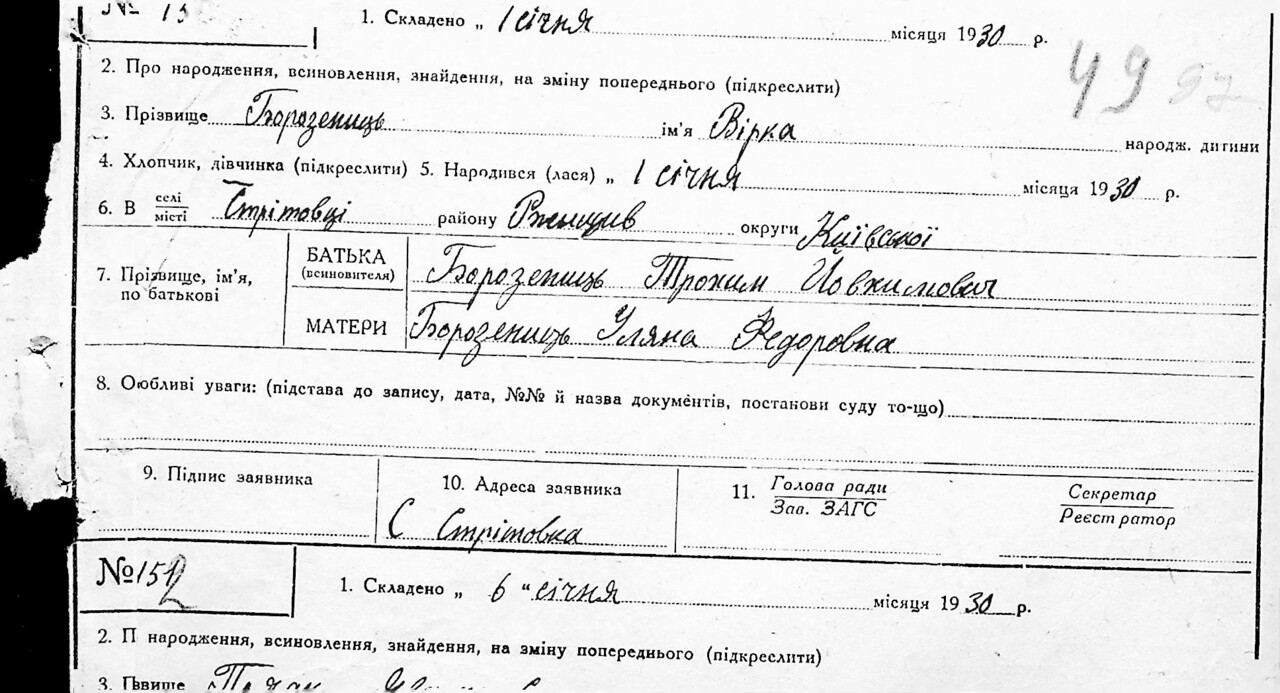 № 13 1. Складено „ 1 січня місяця 1930 р.
49 97
2. Про народження, всиновлення, знайдення, на зміну попереднього (підкреслити)
3. Прізвище Борозенець ім'я Вірка народж. дитини
4. Хлопчик, дівчинка (підкреслити) 5. Народився (лася) „ 1 січня місяця 1930 р.
6. В селі/місті Стрітовці району Ржищив округи Київської
7. Прізвище, ім'я, по батькові
БАТЬКА (всиновителя) Борозенець Трохим Йовхимович
МАТЕРИ Борозенець Уляна Федоровна
8. Оюбливі уваги: (підстава до запису, дата, №№ й назва документів, постанови суду то-що)
9. Підпис заявника 10. Адреса заявника 11. Голова ради/Зав. ЗАГС Секретар/Реєстратор
С Стрітовка
№ 152 1. Складено „ 6 " січня місяця 1930 р.
2. П народження, всиновлення, знайдення, на зміну попереднього (підкреслити)
3. П звище